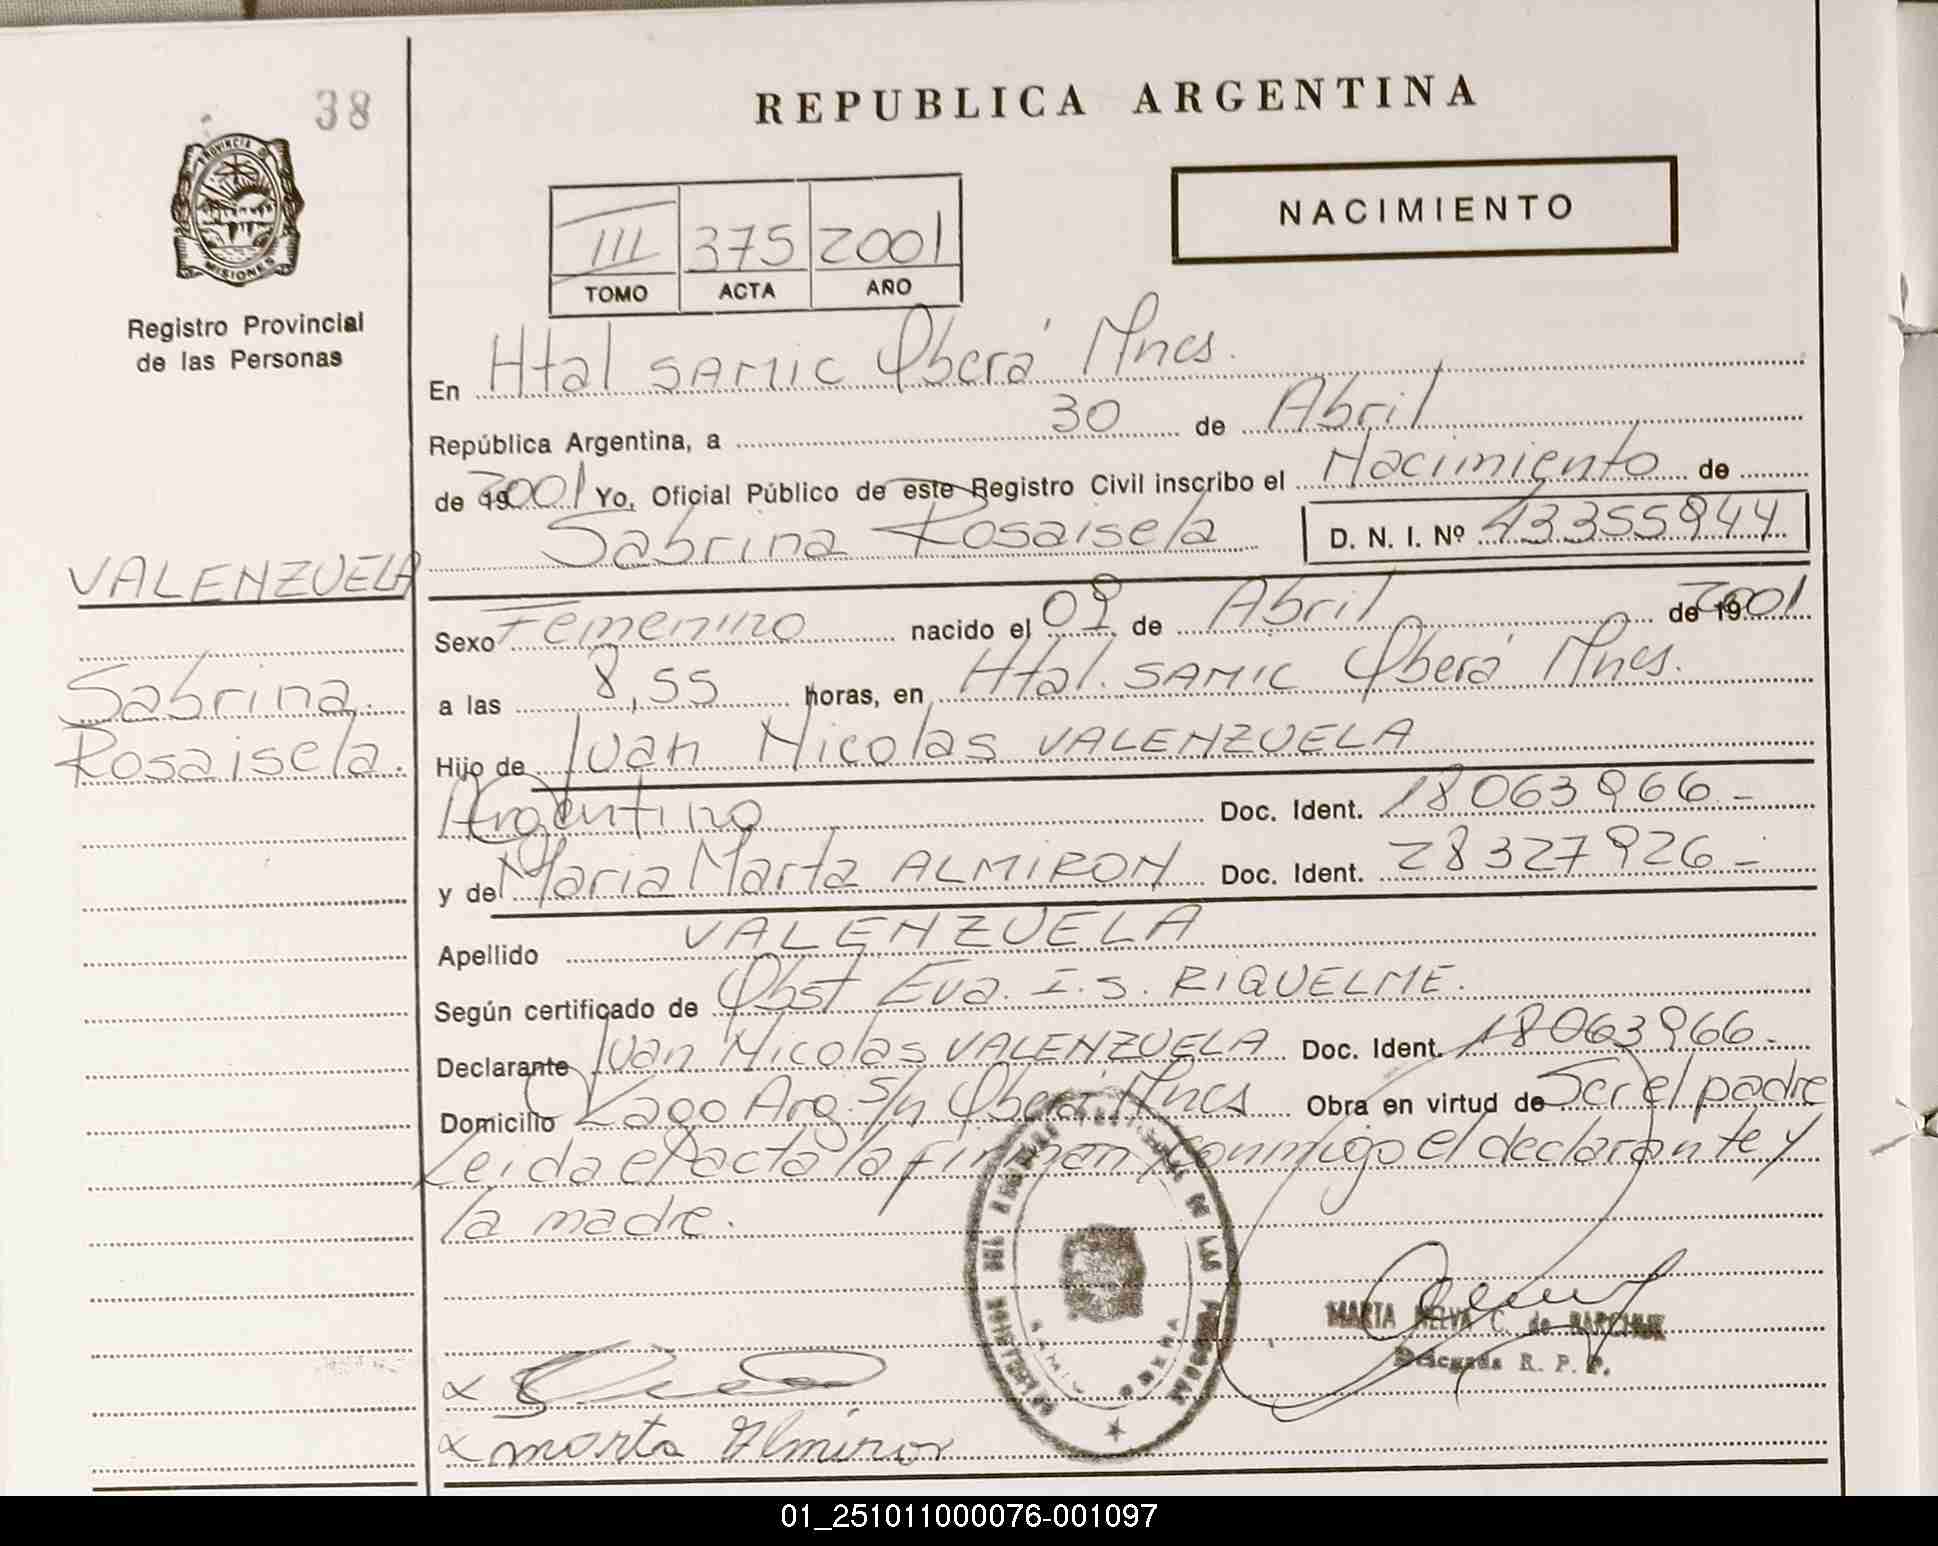 38
PROVINCIA DE
MISIONES
Registro Provincial
de las Personas
REPUBLICA ARGENTINA
NACIMIENTO
III 375 2001
TOMO ACTA AÑO
En Htal SAMIC Oberá Mnes.
República Argentina, a 30 de Abril
de 19 2001 Yo, Oficial Público de este Registro Civil inscribo el Nacimiento de
Sabrina Rosaisela D. N. I. Nº 43355944
VALENZUELA
Sabrina
Rosaisela.
Sexo Femenino nacido el 09 de Abril de 19 2001
a las 8,55 horas, en Htal. SAMIC Oberá Mnes.
Hijo de Juan Nicolas VALENZUELA
Argentino Doc. Ident. 18063966.-
y de Maria Marta ALMIRON Doc. Ident. 28327926.-
Apellido VALENZUELA
Según certificado de Obst Eva. I.S. RIQUELME.
Declarante Juan Nicolas VALENZUELA Doc. Ident. 18063966.-
Domicilio Lago Arg. S/n Oberá Mnes Obra en virtud de Ser el padre
Leida el acta la firman conmigo el declarante y
la madre.
MARTA NELVA C. de
Delegada R. P. P.
x
x marta Almiron
01_251011000076-001097